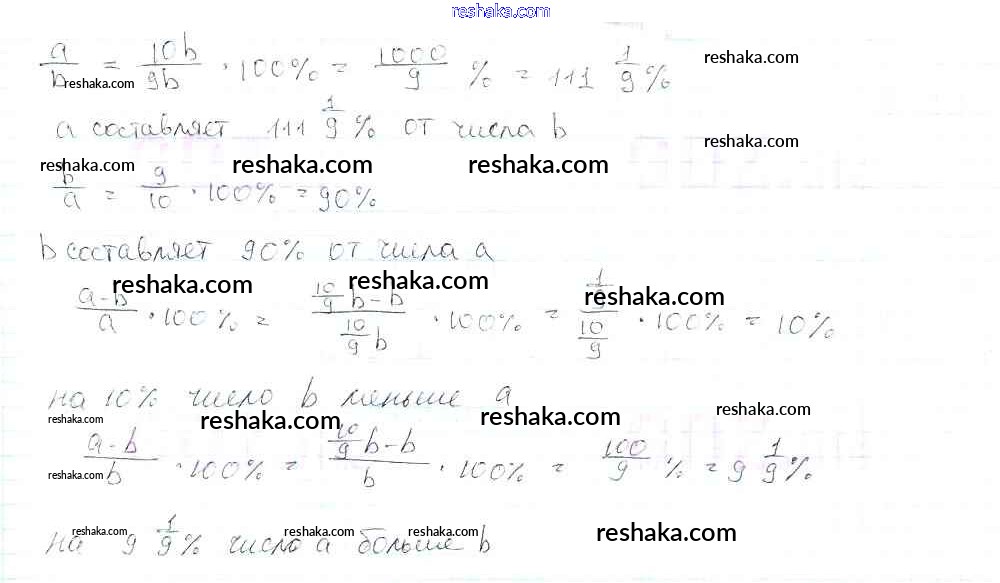 reshaka.com
a/b = 10b/9b · 100% = 1000/9 % = 111 1/9 % reshaka.com
reshaka.com
a составляет 111 1/9 % от числа b
reshaka.com
reshaka.com reshaka.com reshaka.com
b/a = 9/10 · 100% = 90%
b составляет 90% от числа a
reshaka.com reshaka.com reshaka.com
(a-b)/a · 100% = (10/9 b - b)/(10/9 b) · 100% = (1/9)/(10/9) · 100% = 10%
на 10% число b меньше a
reshaka.com reshaka.com reshaka.com reshaka.com
(a-b)/b · 100% = (10/9 b - b)/b · 100% = 100/9 % = 9 1/9 %
reshaka.com
reshaka.com reshaka.com reshaka.com reshaka.com
на 9 1/9 % число a больше b